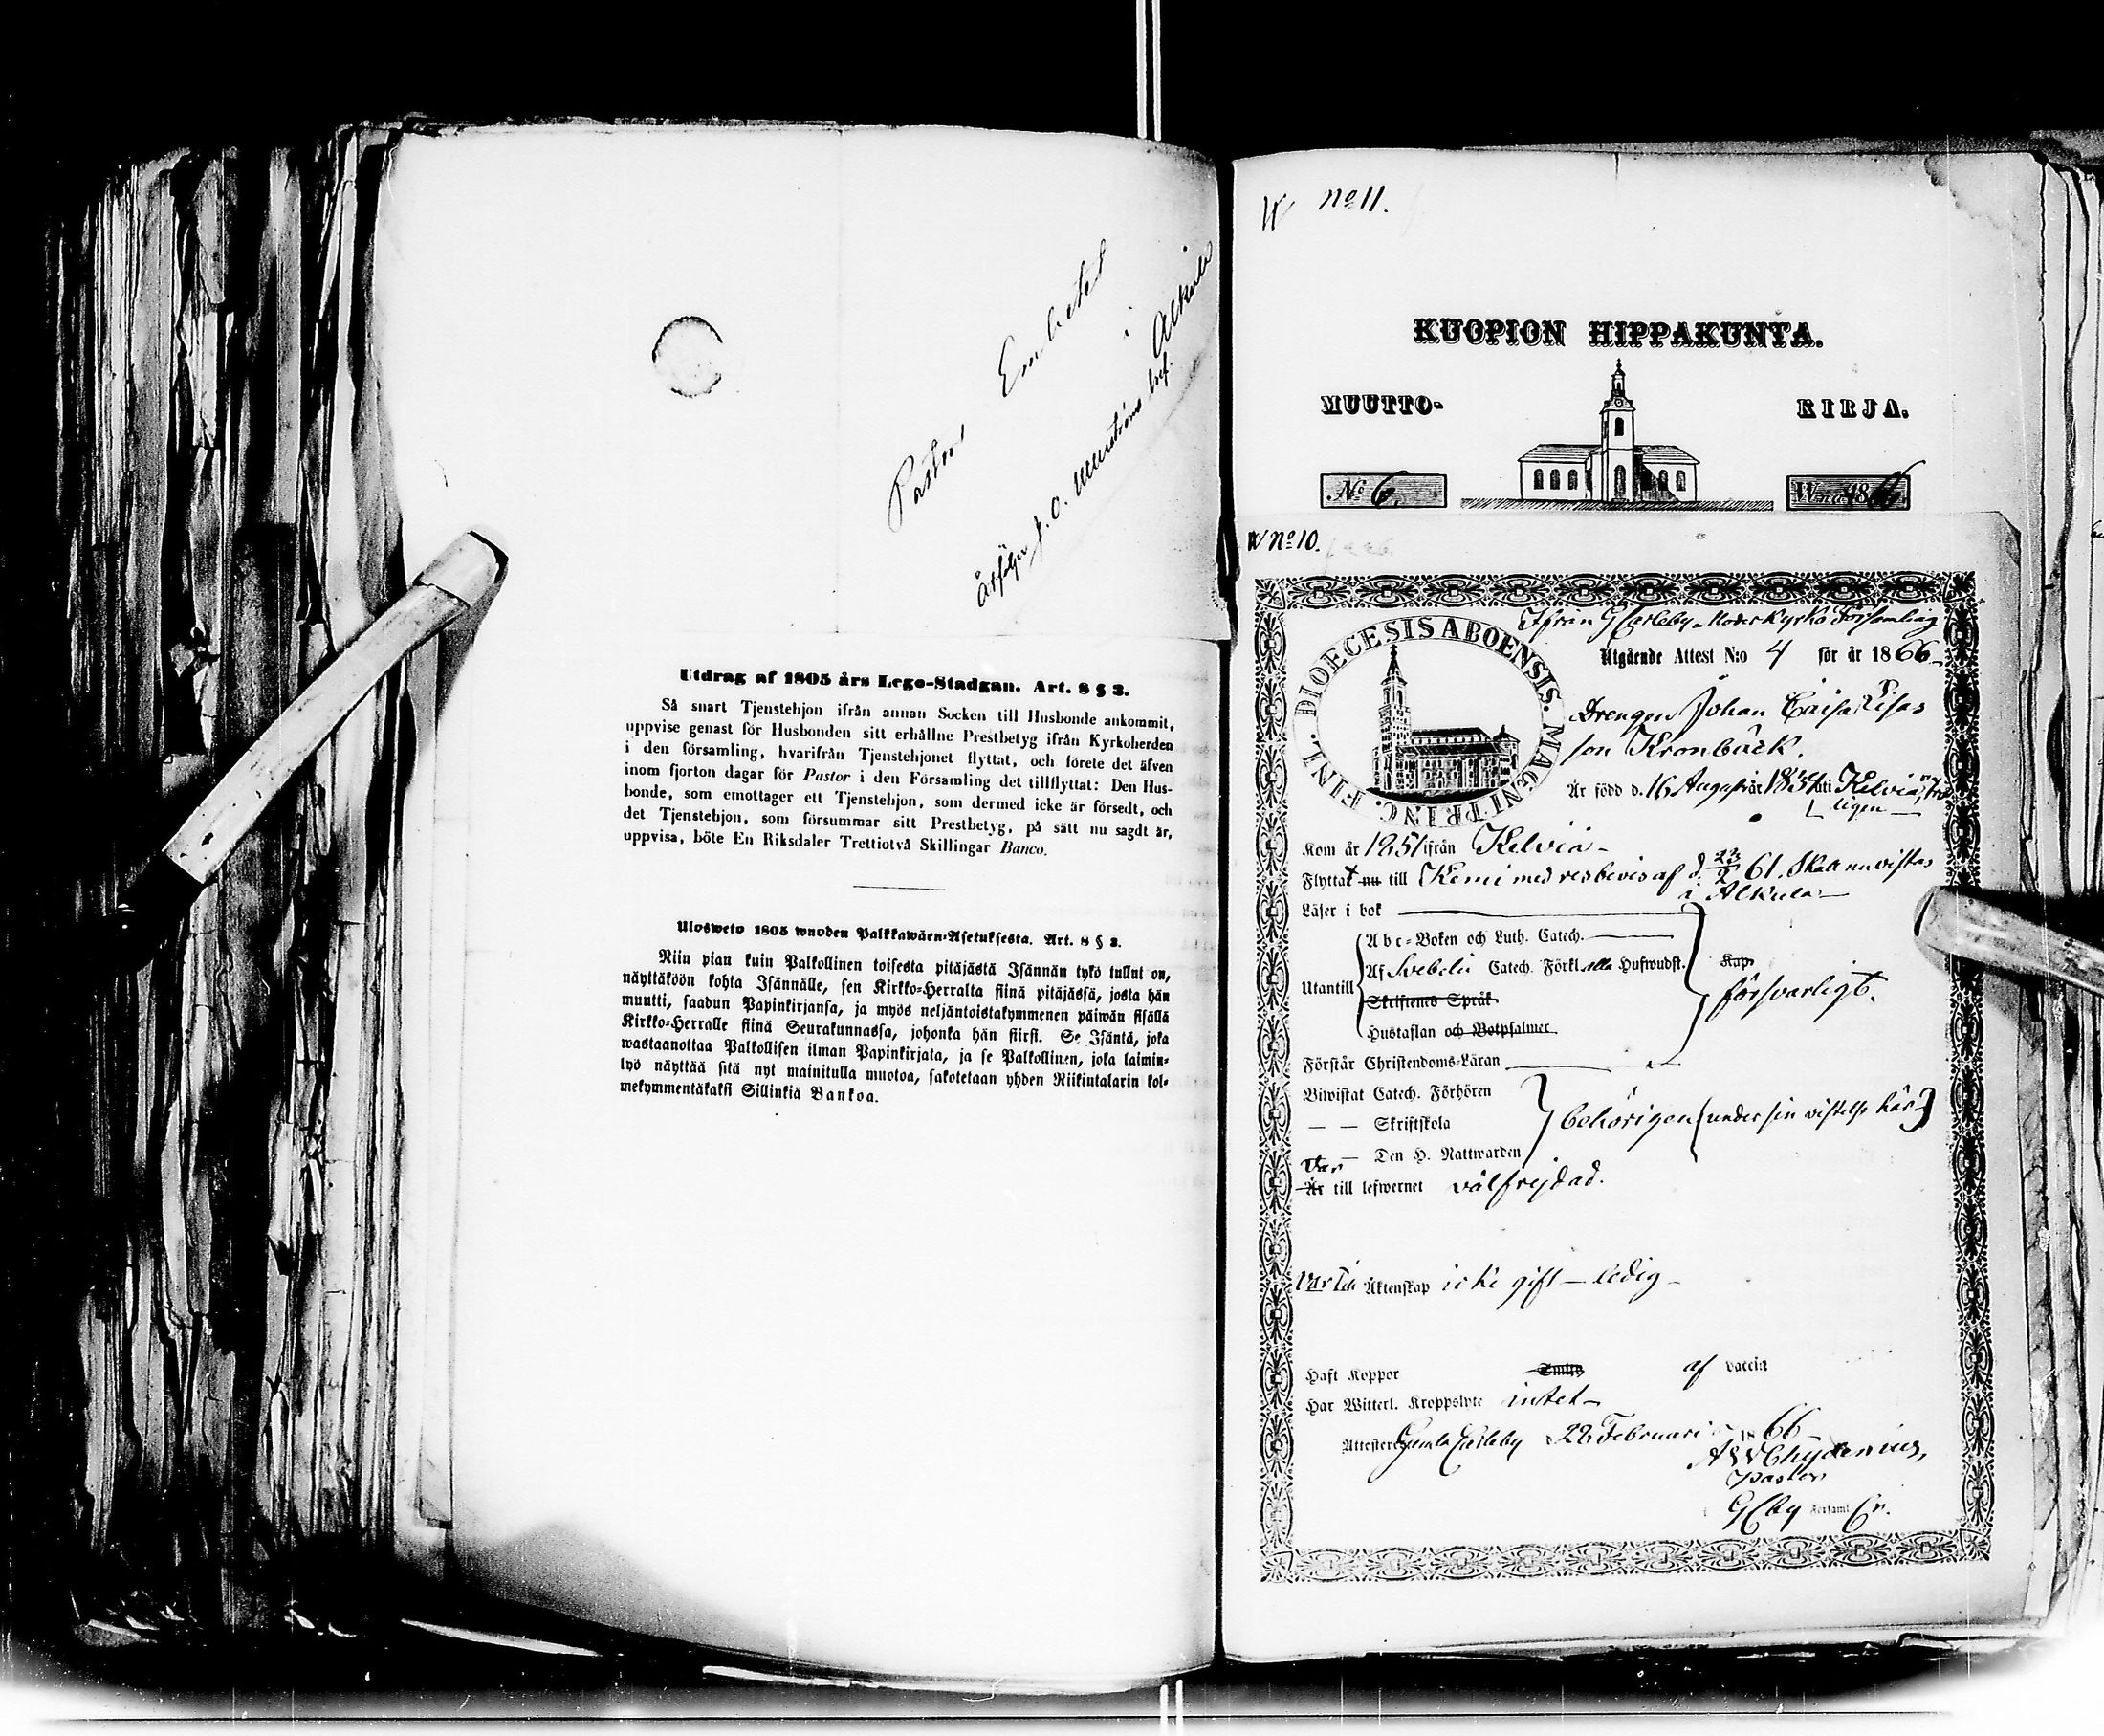 Pastors Embetet
i
Alkula
Åtföljer J. O. bref.
Utdrag af 1805 års Lego-Stadgan. Art. 8 § 3.
Så snart Tjenstehjon ifrån annan Socken till Husbonde ankommit,
uppvise genast för Husbonden sitt erhållne Prestbetyg ifrån Kyrkoherden
i den församling, hvarifrån Tjenstehjonet flyttat, och förete det äfven
inom fjorton dagar för Pastor i den Församling det tillflyttat: Den Hus-
bonde, som emottager ett Tjenstehjon, som dermed icke är försedt, och
det Tjenstehjon, som försummar sitt Prestbetyg, på sätt nu sagdt är,
uppvisa, böte En Riksdaler Trettiotvå Skillingar Banco.
Ulosweto 1805 wuoden Palkkawäen-Asetuksesta. Art. 8 § 3.
Niin pian kuin Palkollinen toisesta pitäjästä Isännän tykö tullut on,
näyttäköön kohta Isännälle, sen Kirkko-Herralta siinä pitäjässä, josta hän
muutti, saadun Papinkirjansa, ja myös neljäntoistakymmenen päiwän sisällä
Kirkko-Herralle siinä Seurakunnassa, johonka hän siirsi. Se Isäntä, joka
wastaanottaa Palkollisen ilman Papinkirjata, ja se Palkollinen, joka laimin-
lyö näyttää sitä nyt mainitulla muotoa, sakotetaan yhden Riikintalarin kol-
mekymmentäkaksi Sillinkiä Bankoa.
W No 11.
KUOPION HIPPAKUNTA.
MUUTTO- KIRJA.
No 6. W:na 1866.
W No 10.
Ifrån GCarleby Moderkyrko Församling
DIOECESIS ABOENSIS. MAGNI PRINC. FINL.
Utgående Attest N:o 4 för år 1866
Drengen Johan Caisa Lisas
son Kronbäck.
Är född d. 16 Augusti år 1834 uti Kelviå,
ligen
Kom år 1851 ifrån Kelviå
Flyttat nu till Kemi med resbevis af d. 23/2 61. Skall nu vistas
i Alkula
Läser i bok
Utantill
Abc-Boken och Luth. Catech.
Af Svebelii Catech. Förkl alla Hufwudst.
Skriftenes Språk
Hustaflan och Botpsalmer
Kap
försvarligt.
Förstår Christendoms-Läran
Biwistat Catech. Förhören
— — Skriftskola
— — Den H. Nattwarden
behörigen (under sin vistelse här)
Var
Är till lefwernet välfrejdad.
Var Till Äktenskap icke gift – ledig –
Haft Koppor af vaccin
Har Witterl. Kroppslyte intet
Attesterar Gamla Carleby d. 28 Februari 1866
A W Chydenius,
Pastor
GCby Församl.